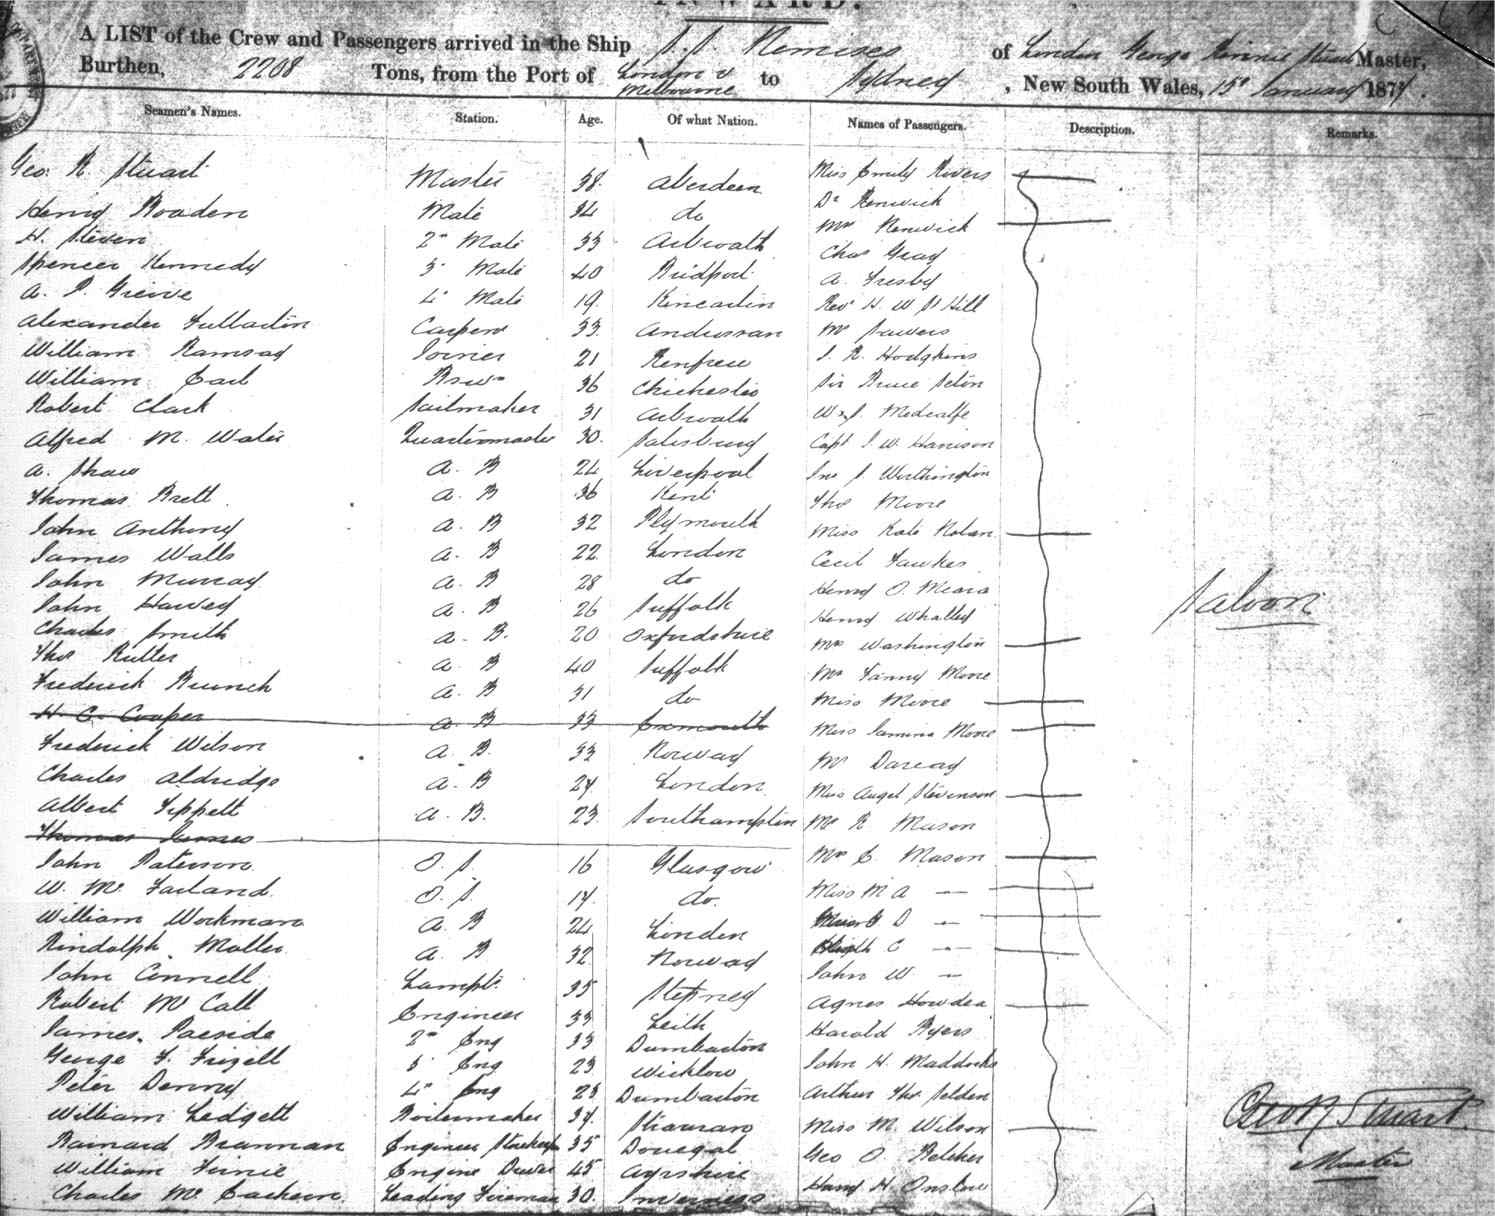 INWARD.
A LIST of the Crew and Passengers arrived in the Ship S.S. Nemises of London George Rennie Stuart Master,
Burthen, 2208 Tons, from the Port of London & Melbourne to Sydney, New South Wales, 15th January 1877.
Seamen's Names. Station. Age. Of what Nation. Names of Passengers. Description. Remarks.
Geo. R. Stuart Master 38 Aberdeen Miss Emily Rivers
Henry Roaden Mate 34 do Dr Renwick
H. Steven 2nd Mate 33 Arbroath Mrs Renwick
Spencer Kennedy 3rd Mate 40 Bridport Chas Gray
A. P. Greive 4th Mate 19 Kincardin A. Tresby
Alexander Fullarton Carpenr 33 Androssan Revd H. W. Hill
William Ramsay Joiner 21 Renfrew Mr Sawers
William Earl Bswn 36 Chichester J. R. Hodgkins
Robert Clark Sailmaker 31 Arbroath Sir Bruce Seton
Alfred M. Water Quartermaster 30. Salisbury Metcalfe
A. Shaw A. B 24 Liverpool Capt J. W. Harrison
Thomas Brett A. B 36 Kent Jno J. Worthington
John Anthony A. B 32 Plymouth Thos Moore
James Walls A. B 22 London Miss Kate Nolan
John Murray A. B 28 do Cecil Fawkes
John Harvey A. B 26 Suffolk Henry O. Meara
Charles Smith A. B. 20 Oxfordshire Henry Whalley
Thos Rutter A. B 40 Suffolk Mrs Washington
Frederick Brunch A. B 31 do Mrs Fanny Moore
H. C. Cooper A. B 33 Exmouth Miss Moore
Frederick Wilson A. B. 33 Norway Miss Jamina Moore
Charles Aldridge A. B 24 London Mr Darcay
Albert Tippett A. B. 23 Southampton Miss Auget Stevenson
Thomas James Mr R Mason
John Paterson O. S. 16 Glasgow Mrs E. Mason
W. Mc Farland O. S. 17. do. Miss M A —
William Workman A. B 24 London D —
Rindolph Moller A. B 32 Norway C —
John Connell Lampt. 35 Stepney John W —
Robert Mc Call Engineer 33 Leith Agnes Howden
James Paeside 2nd Eng 33 Dumbarton Harold Byers
George F. Frizell 3rd Eng 23 Wicklow John H. Maddocks
Peter Denny 4th Eng 23 Dumbarton Arthur Thos Selden
William Ledgett Boilermaker 37. Miss M. Wilson
Barnard Brannan Engineer Storekeepr 35 Donegal Geo O. Belcher
William Fernie Engine Driver 45 Ayrshire Harry H. Onslow
Charles Mc Eachern Leading Fireman 30. Inverness
Saloon
Geo R Stuart
Master